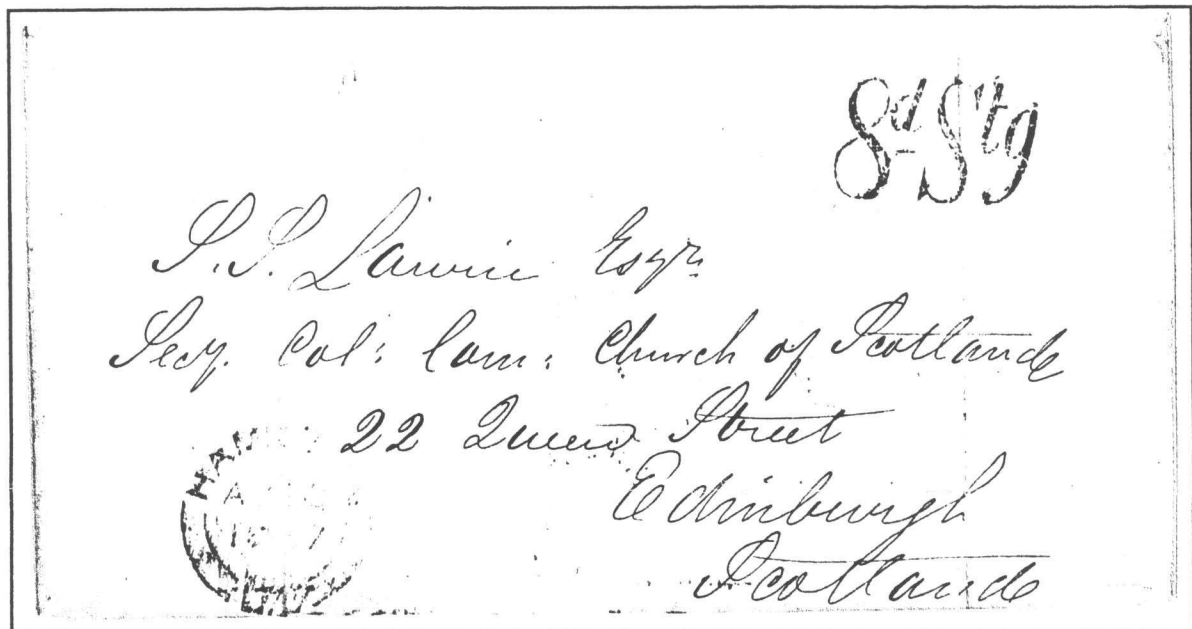 8d Stg
S. S. Laurie Esqr.
Secy. Col: Com: Church of Scotland
22 Queen Street
Edinburgh
Scotland
HAM